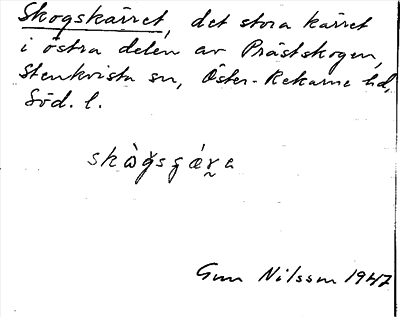 Skogskärret, det stora kärret
i östra delen av Prästskogen,
Stenkvista sn, Öster-Rekarne hd,
Söd. l.
Gun Nilsson 1947